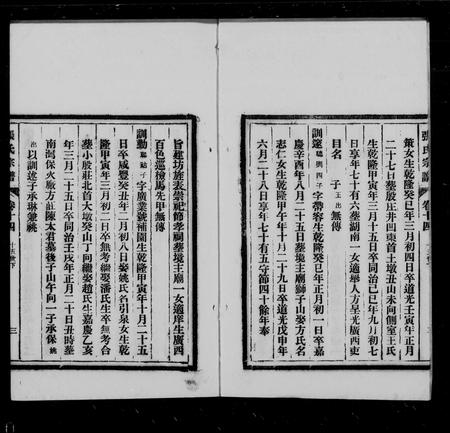 張氏宗譜 卷十四
策女生乾隆癸巳年三月初四日卒道光壬寅年正月
二十七日墓殷庄井凹東首土墩丑山未向側室王氏
生乾隆甲寅年三月十五日卒同治己巳年九月初七
日享年七十有六墓湖南一女適舉人方呈光廣西東
目名 子 玉出 無傳
訓遠 聰興四子 字馨容生乾隆癸巳年正月初一日卒嘉
慶辛酉年八月二十五日墓境主廟獅子山娶方氏名
志仁女生乾隆甲午年十二月二十九日卒道光戊申年
六月二十八日享年七十有五守節四十餘年奉
旨建坊旌表崇祀節孝祠墓境主廟一女適庠生廣西
百色巡檢馬先甲無傳
訓勳 子 字廣業號補園生乾隆甲寅年十月二十五
日卒咸豐癸丑年二月初八日娶姚氏名引泉女生乾
隆甲寅年三月初二日卒無考繼娶潘氏生卒無考合
墓小殷莊北首大墩癸山丁向繼娶趙氏生嘉慶乙亥
年三月二十五日卒同治壬戌年正月二十日丑時墓
南灣保火廠方莊陳太君墓後子山午向一子承保 姚
出 以訓述子承琳兼祧
張氏宗譜 卷十四 十五世下 三